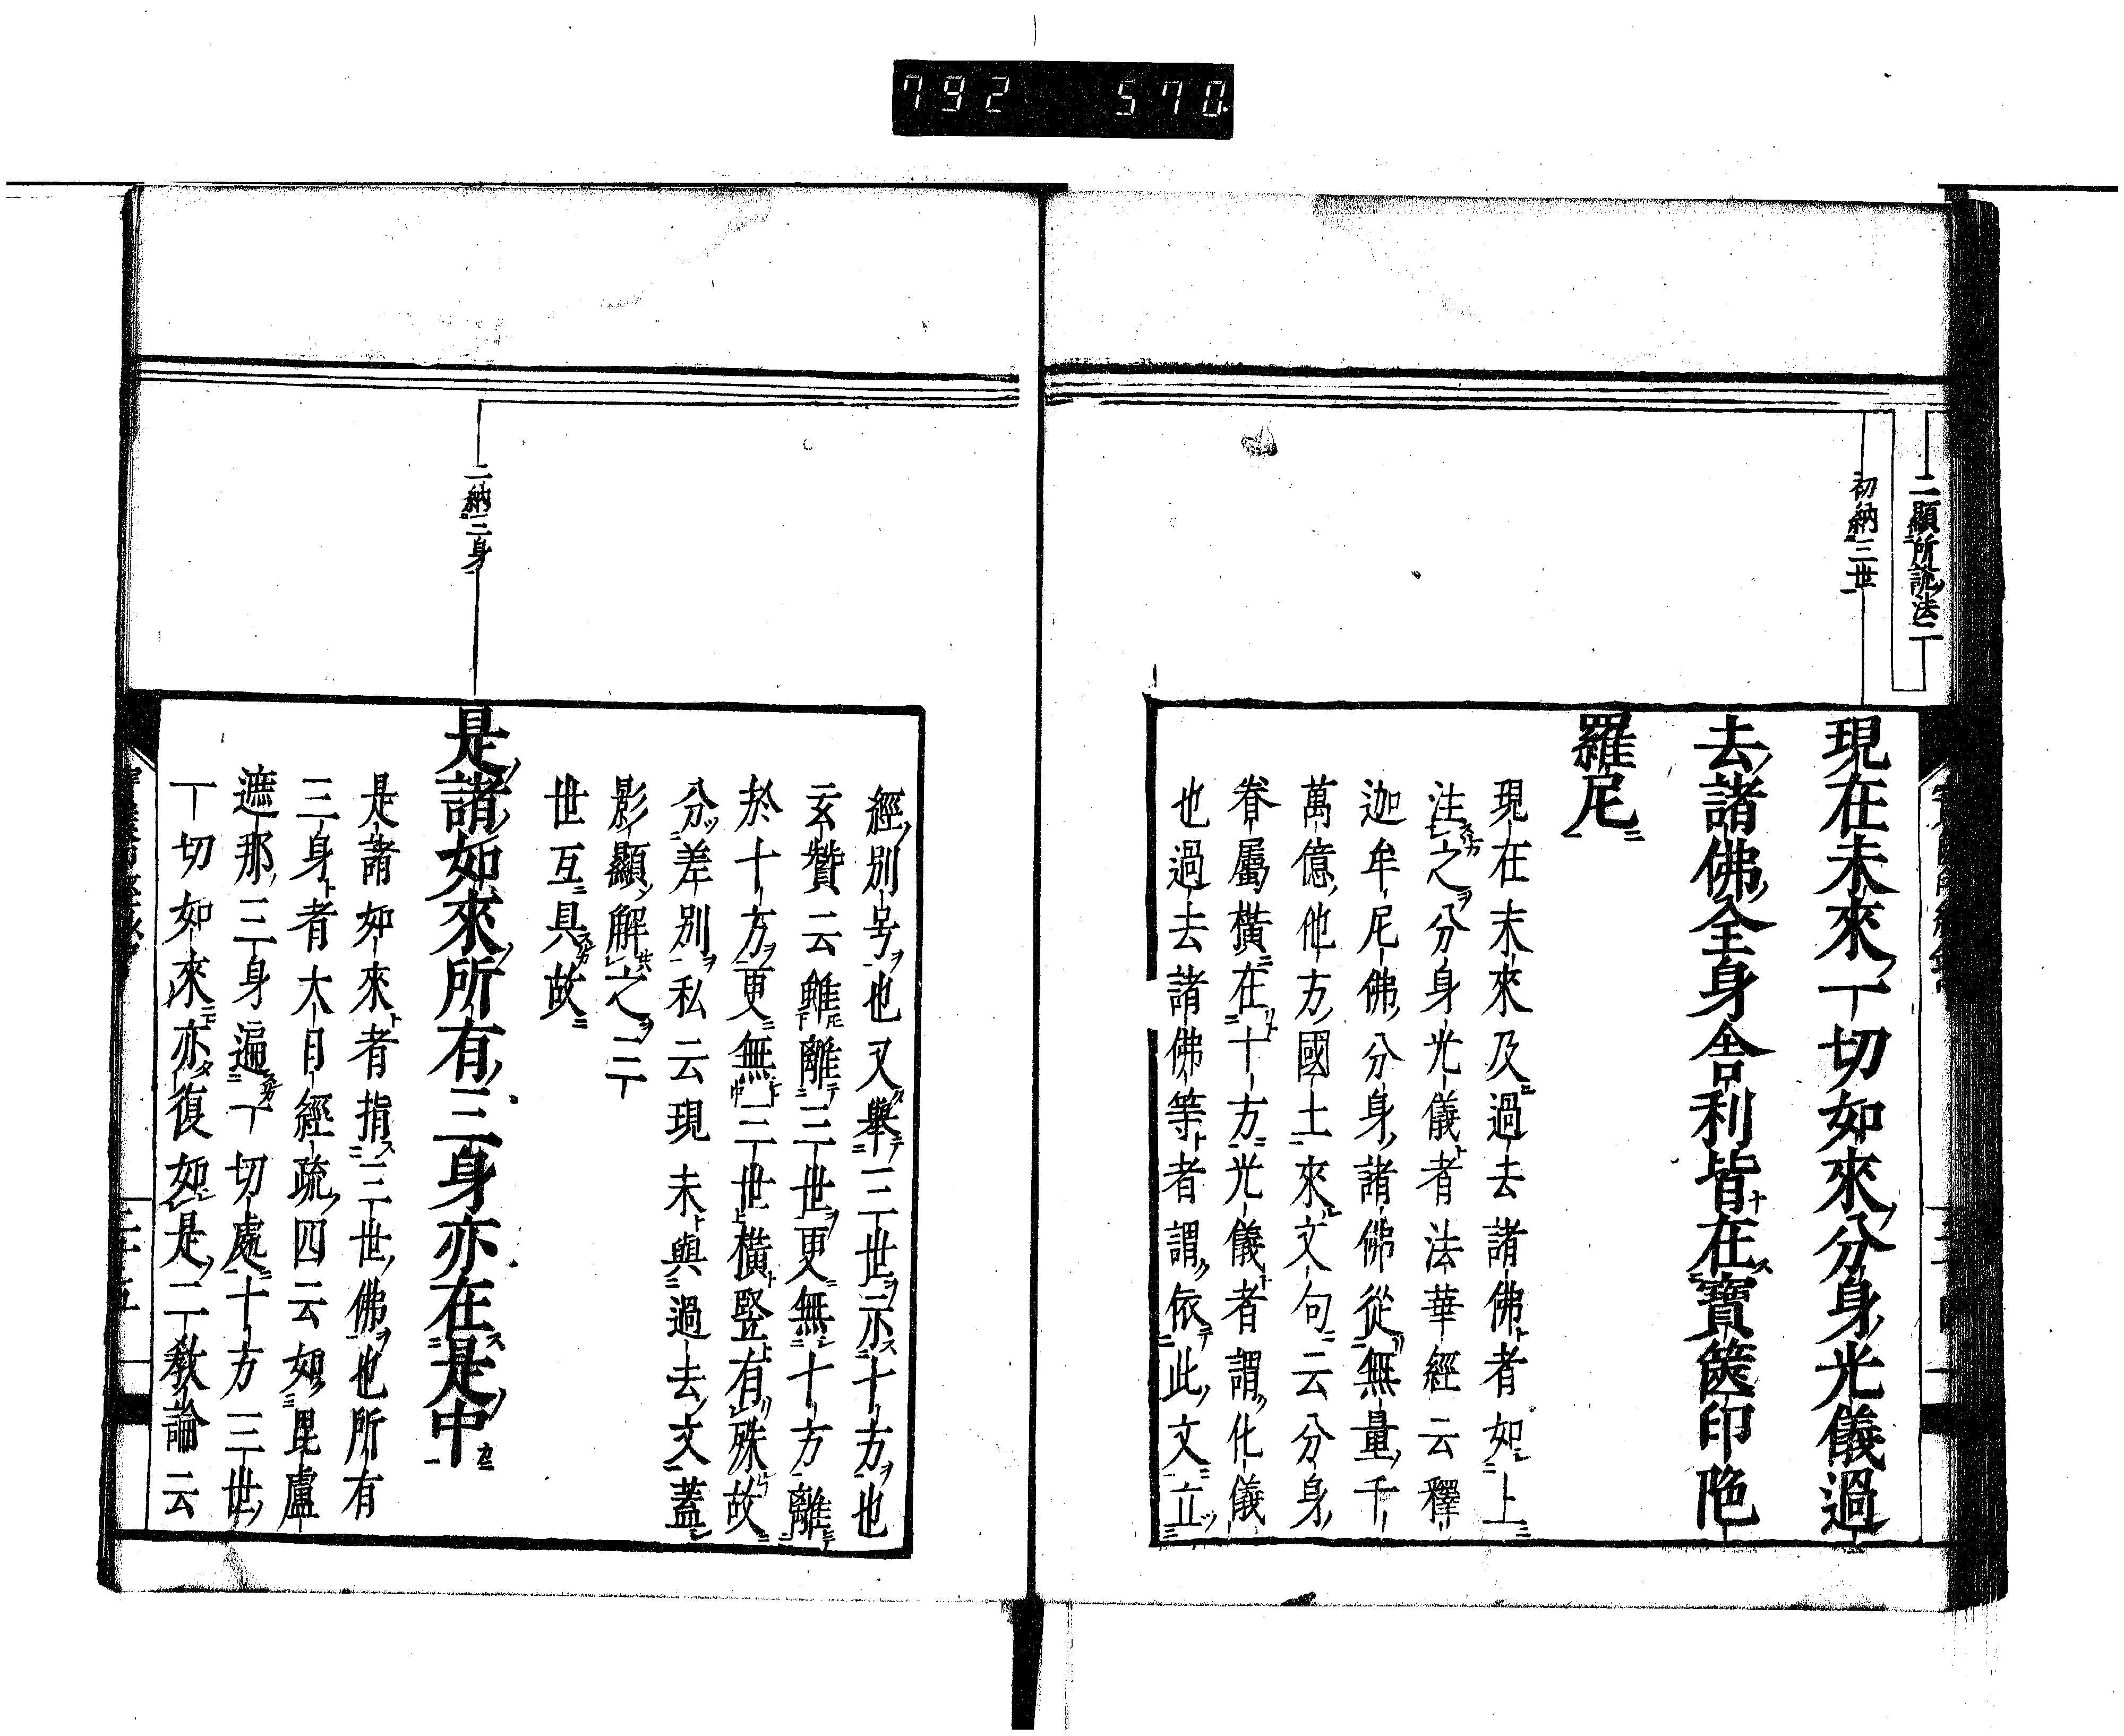 792 570
二顯所詮法二
初納三世
現在未來一切如來分身光儀過
去諸佛全身舍利皆在寶篋印陁
羅尼
現在未來及過去諸佛者如上
注之分身光儀者法華經云釋
迦牟尼佛分身諸佛從無量千
萬億他方國土來文句云分身
眷屬橫在十方光儀者謂化儀
也過去諸佛等者謂依此文立
二納三身
經別号也又舉三世示十方也
玄贊云雖離三世更無十方離
於十方更無三世橫竪有殊故
分差別私云現未與過去文蓋
影顯解之三
世互具故
是諸如來所有三身亦在是中
是諸如來者指三世佛也所有
三身者大日經疏四云如毘盧
遮那三身遍一切處十方三世
一切如來亦復如是二教論云
二十五